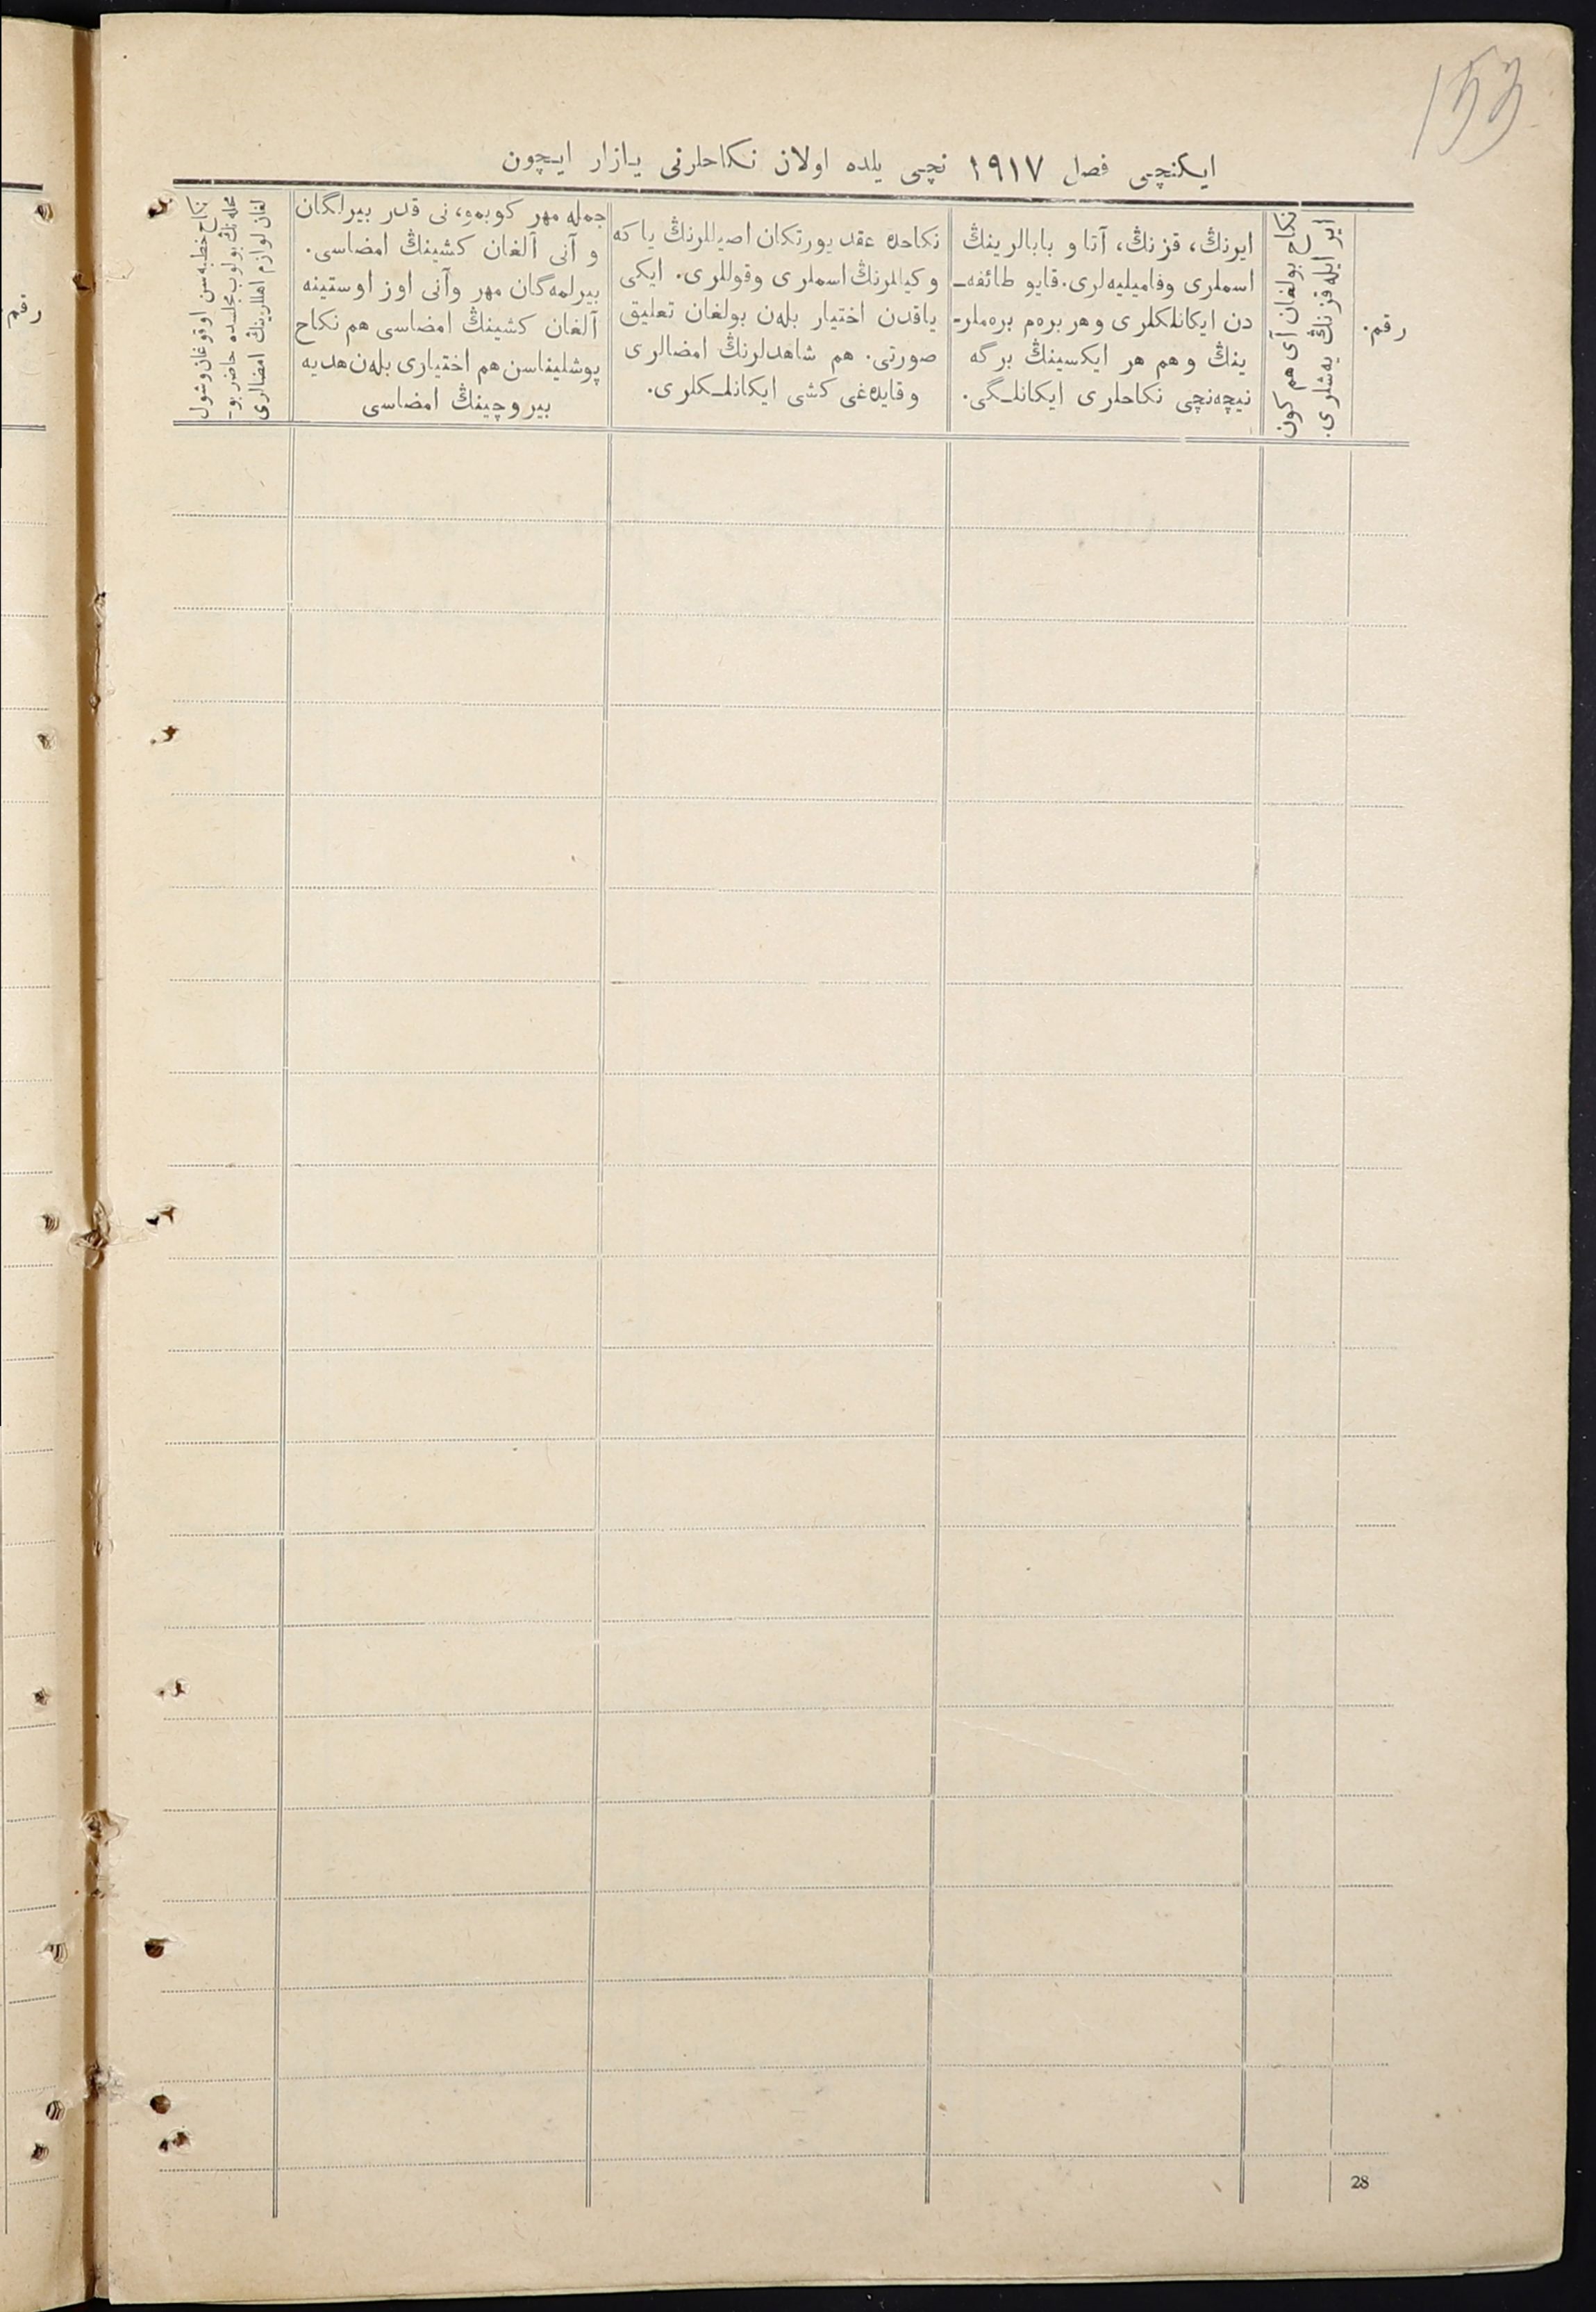 153
ایكنچی فصل ١٩١٧ نچی یلده اولان نكاحلرنی یازار ایچون
رقم.
نكاح بولغان آی هم كون
ایر ایله قزنڭ یه‌شلری.
ایرنڭ، قزنڭ، آتا و بابالرینڭ
اسملری وفامیلیه‌لری. قایو طائفه‌ـ
دن ایكانلكلری وهر بره‌م بره‌ملر-
ینڭ وهم هر ایكسینڭ برگه
نیچه‌نچی نكاحلری ایكانلـگی.
نكاحده عقد یورتكان اصیللرنڭ یا كه
وكیللرنڭ اسملری وقوللری. ایكی
یاقدن اختیار بله‌ن بولغان تعلیق
صورتی. هم شاهدلرنڭ امضالری
وقایده‌غی كشی ایكانلـكلری.
جمله مهر كوبمو، نی قدر بیرلگان
و آنی آلغان كشینڭ امضاسی.
بیرلمه‌گان مهر وآنی اوز اوستینه
آلغان كشینڭ امضاسی هم نكاح
پوشلیناسن هم اختیاری بله‌ن هدیه
بیروچینڭ امضاسی
نكاح خطبه‌سن اوقوغان وشول
محله‌نڭ بولوب مجلسده حاضر بو-
لغان لوازم اهللرینڭ امضالری
رقم
28